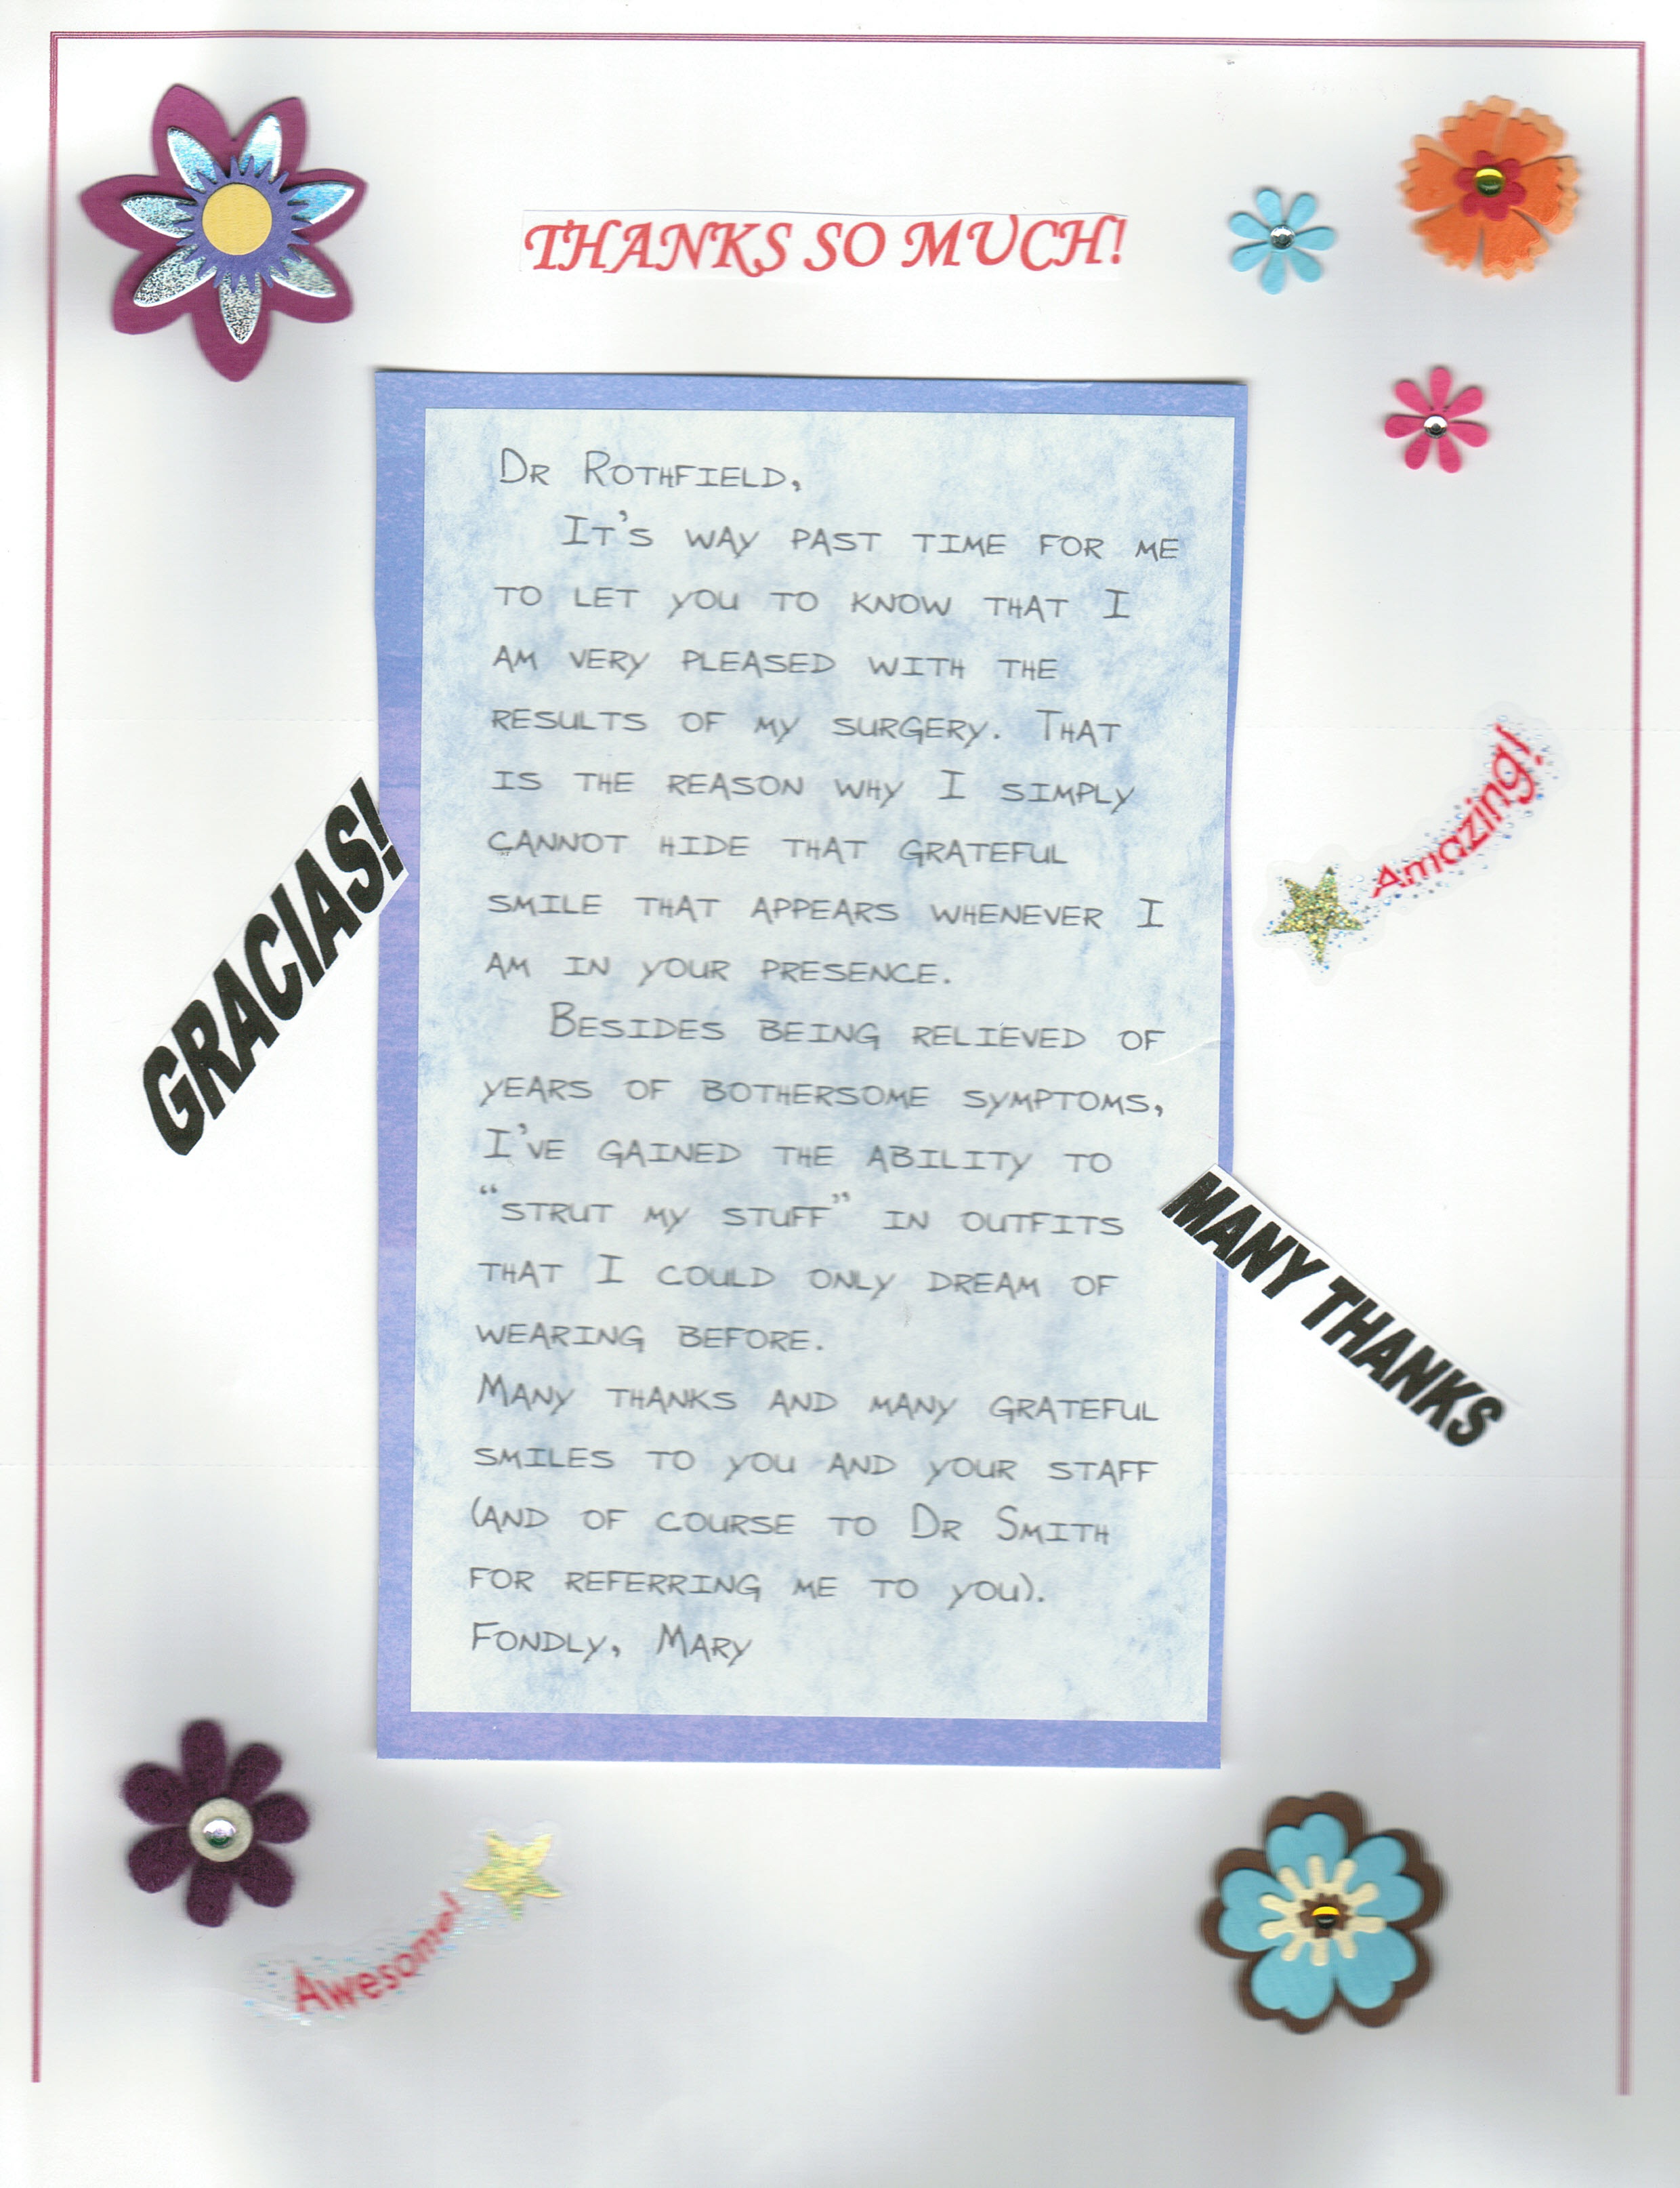 THANKS SO MUCH!
DR ROTHFIELD,
IT'S WAY PAST TIME FOR ME
TO LET YOU TO KNOW THAT I
AM VERY PLEASED WITH THE
RESULTS OF MY SURGERY. THAT
IS THE REASON WHY I SIMPLY
CANNOT HIDE THAT GRATEFUL
SMILE THAT APPEARS WHENEVER I
AM IN YOUR PRESENCE.
BESIDES BEING RELIEVED OF
YEARS OF BOTHERSOME SYMPTOMS,
I'VE GAINED THE ABILITY TO
"STRUT MY STUFF" IN OUTFITS
THAT I COULD ONLY DREAM OF
WEARING BEFORE.
MANY THANKS AND MANY GRATEFUL
SMILES TO YOU AND YOUR STAFF
(AND OF COURSE TO DR SMITH
FOR REFERRING ME TO YOU).
FONDLY, MARY
GRACIAS!
Amazing!
MANY THANKS
Awesome!